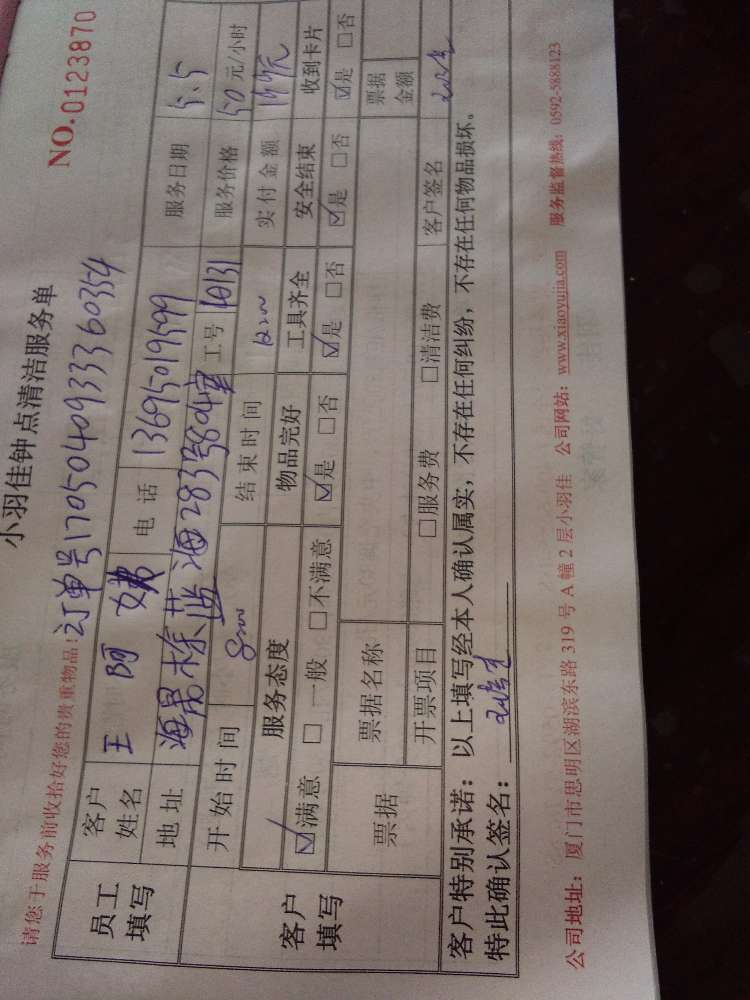 小羽佳钟点清洁服务单
NO.0123870
请您于服务前收拾好您的贵重物品!订单号17050409333360354
员工填写 客户姓名 王阿姨 电话 13695019599 服务日期 5.5
地址 海景 蓝海283号804室 工号 10131 服务价格 50元/小时
客户填写 开始时间 8:00 结束时间 12:00 实付金额
服务态度 物品完好 工具齐全 安全结束 收到卡片
☑满意 □一般 □不满意 ☑是 □否 ☑是 □否 ☑是 □否 ☑是 □否
票据 票据名称 票据金额
开票项目 □服务费 □清洁费 客户签名
客户特别承诺:以上填写经本人确认属实,不存在任何纠纷,不存在任何物品损坏。
特此确认签名:
公司地址:厦门市思明区湖滨东路 319 号 A 幢 2 层小羽佳 公司网站:www.xiaoyujia.com 服务监督热线:0592-5888123